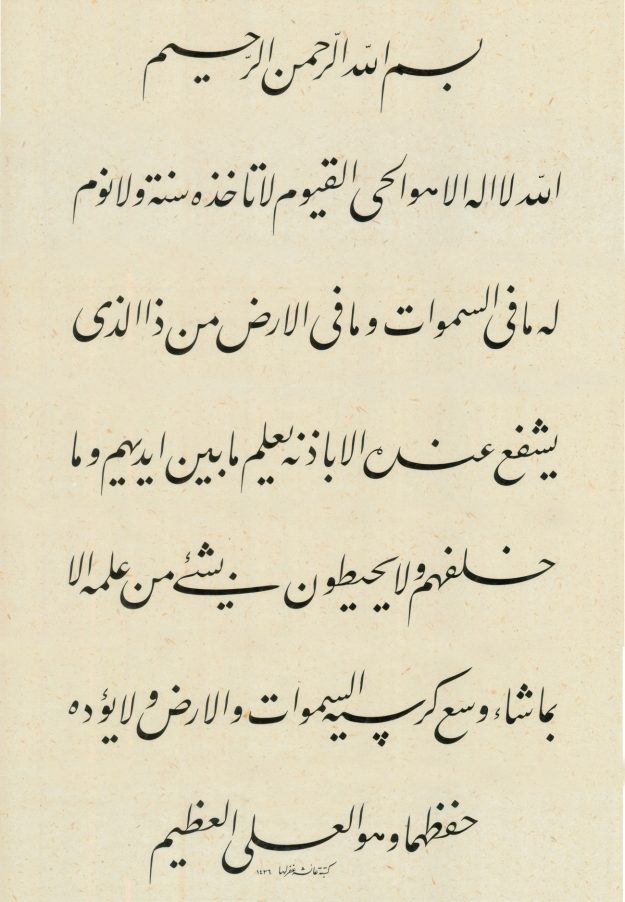 بسم الله الرحمن الرحيم
الله لا اله الا هو الحى القيوم لا تاخذه سنة ولا نوم
له ما فى السموات وما فى الارض من ذا الذى
يشفع عنده الا باذنه يعلم ما بين ايديهم وما
خلفهم ولا يحيطون بشئ من علمه الا
بما شاء وسع كرسيه السموات والارض ولا يؤده
حفظهما وهو العلى العظيم
كتبته عائشه غفر لها ١٤٣٦